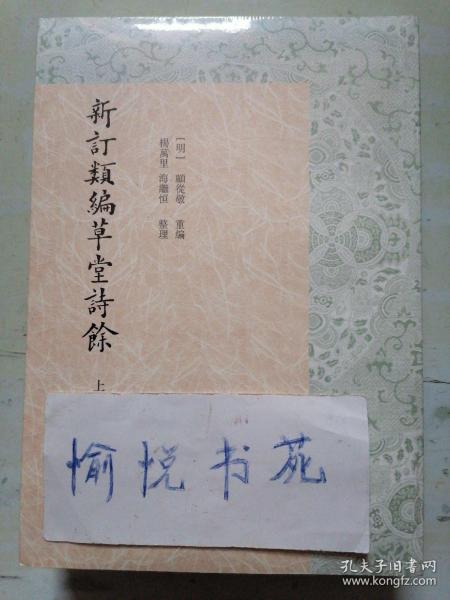 新訂類編草堂詩餘 上
〔明〕 顧從敬 重編
楊萬里 海繼恒 整理
愉悦书苑
孔夫子旧书网
www.kongfz.com